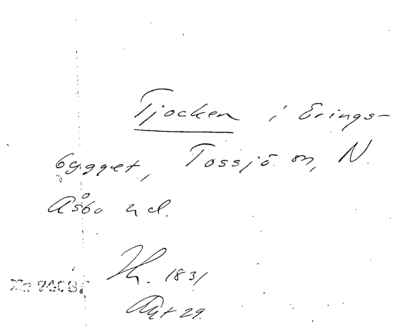 Tjocken i Erings-
bygget, Tossjö sn, N.
Åsbo hd.
Hh. 1831
Akt 29.